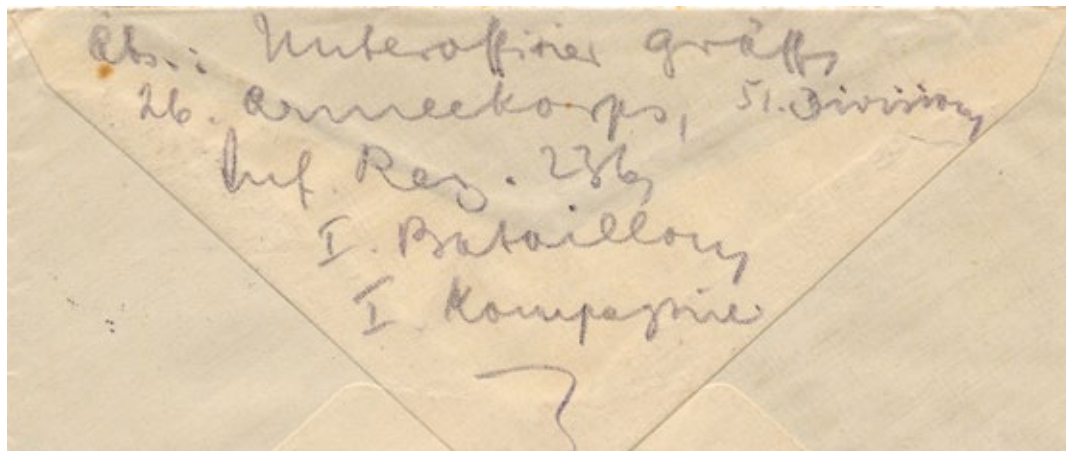 Abs.: Unteroffizier Gräff,
26. Armeekorps, 51. Division,
Inf. Reg. 236,
I. Bataillon,
I. Kompagnie